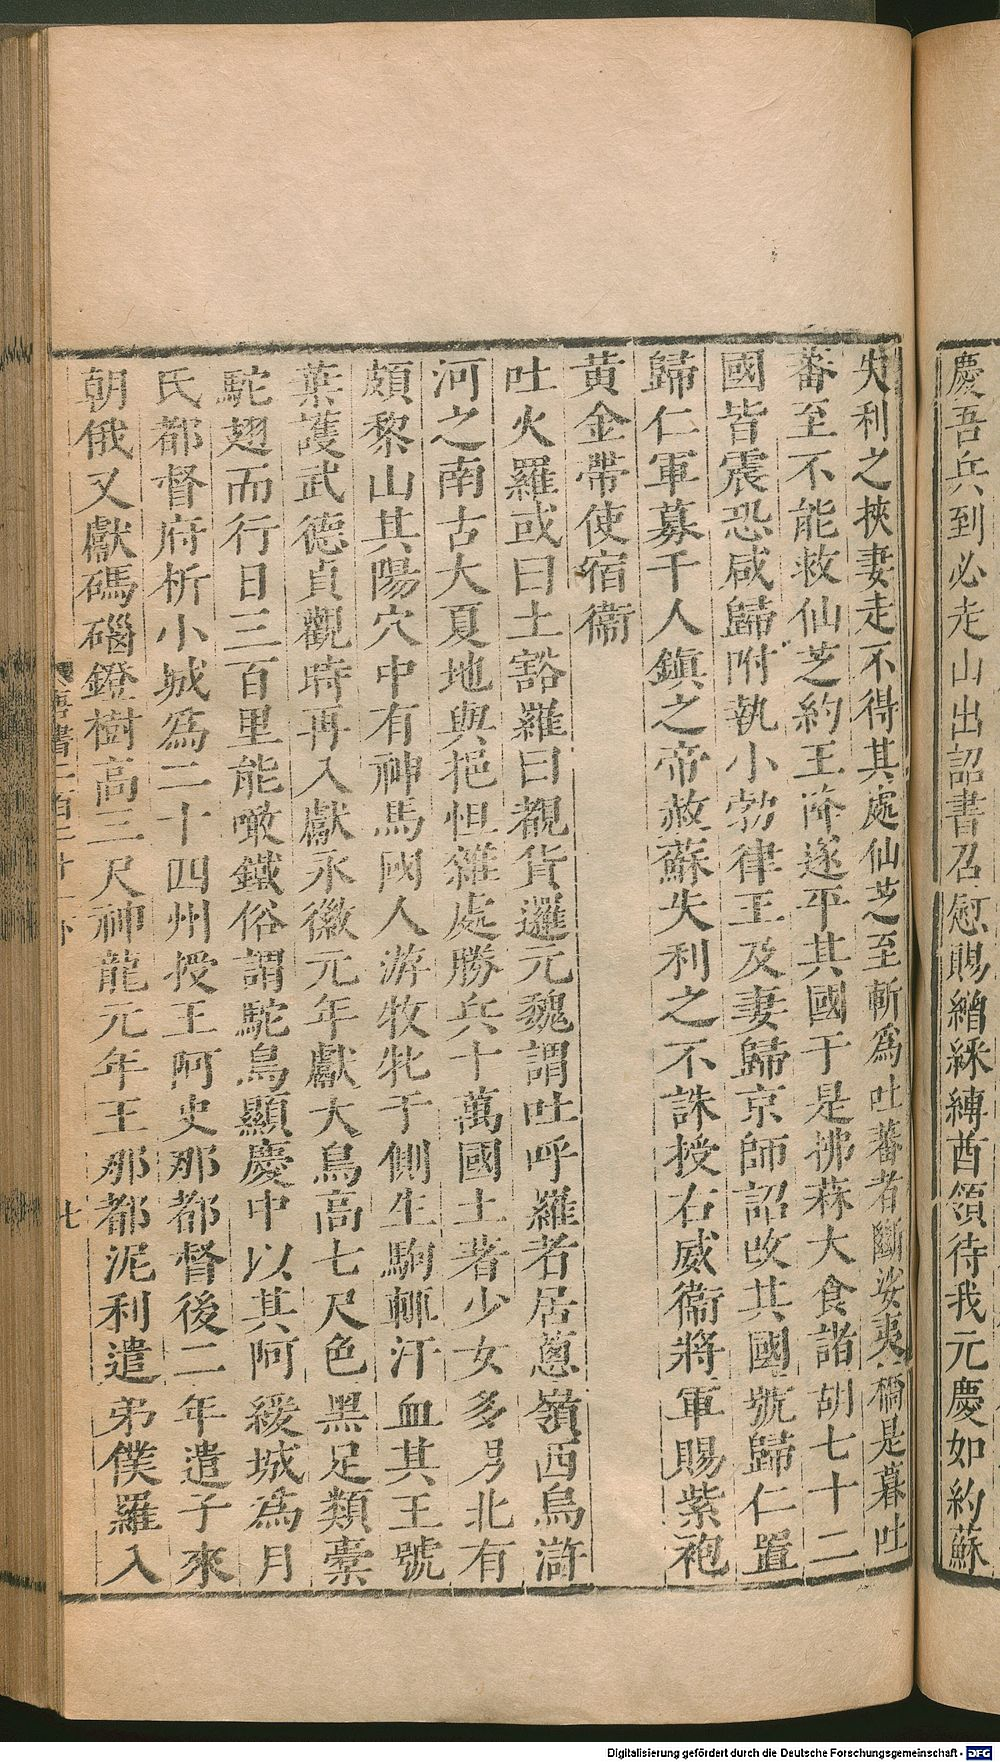 慶吾兵到必走山出詔書召慰賜繒綵縳酋領待我元慶如約蘇
失利之挾妻走不得其處仙芝至斬爲吐蕃者斷娑夷橋是暮吐
蕃至不能救仙芝約王降遂平其國于是拂菻大食諸胡七十二
國皆震恐咸歸附執小勃律王及妻歸京師詔改其國號歸仁置
歸仁軍募千人鎮之帝赦蘇失利之不誅授右威衞將軍賜紫袍
黃金帶使宿衞
吐火羅或曰土豁羅曰覩貨邏元魏謂吐呼羅者居蔥嶺西烏滸
河之南古大夏地與挹怛雜處勝兵十萬國土著少女多男北有
頗黎山其陽穴中有神馬國人游牧牝于側生駒輒汗血其王號
葉護武德貞觀時再入獻永徽元年獻大鳥高七尺色黑足類橐
駝翅而行日三百里能噉鐵俗謂駝鳥顯慶中以其阿緩城爲月
氏都督府析小城爲二十四州授王阿史那都督後二年遣子來
朝俄又獻碼碯鐙樹高三尺神龍元年王那都泥利遣弟僕羅入
唐書二百二十一下
七
Digitalisierung gefördert durch die Deutsche Forschungsgemeinschaft - DFG